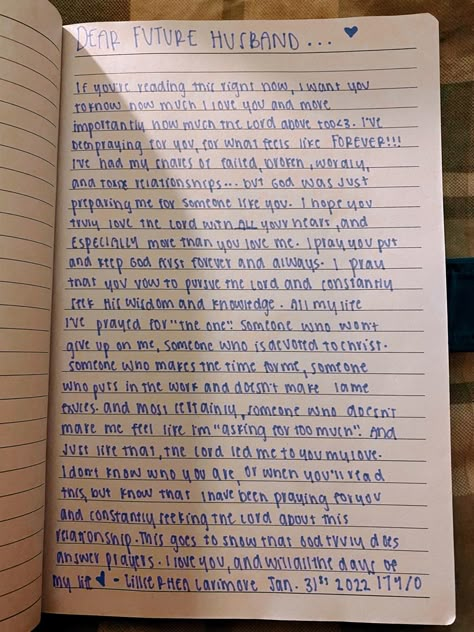 DEAR FUTURE HUSBAND...
If you're reading this right now, I want you
to know how much I love you and more
importantly how much the Lord above too<3. I've
been praying for you, for what feels like FOREVER!!!
I've had my shares of failed, broken, wordly,
and toxic relationships... but God was just
preparing me for someone like you. I hope you
truly love the Lord with ALL your heart, and
ESPECIALLY more than you love me. I pray you put
and keep God first forever and always. I pray
that you vow to pursue the Lord and constantly
seek His wisdom and knowledge. All my life
I've prayed for "the one". Someone who won't
give up on me, someone who is devoted to Christ.
someone who makes the time for me, someone
who puts in the work and doesn't make lame
and most certainly, someone who doesn't
make me feel like I'm "asking for too much". And
Just like that, the Lord led me to you my love.
I don't know who you are, or when you'll read
this, but know that I have been praying for you
and constantly seeking the Lord about this
relationship. This goes to show that God truly does
answer prayers. I love you, and will all the days of
my life - Larimore Jan. 31st 2022